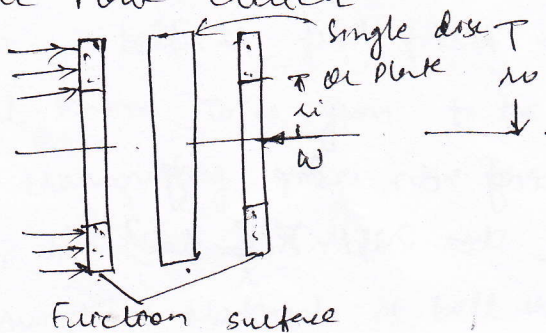 Single disc
or Plate
ro
ri
W
Friction surface